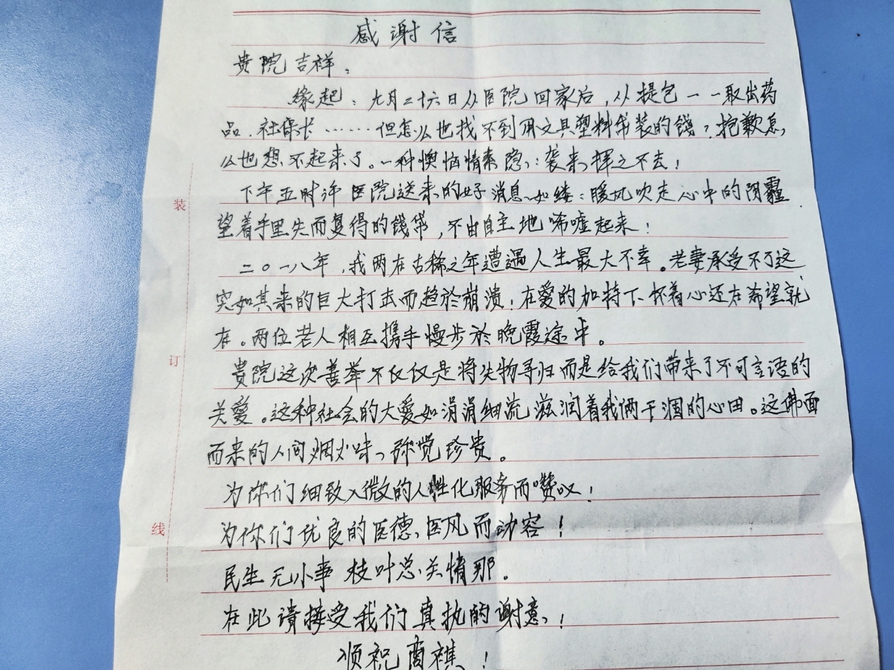 感谢信
贵院吉祥,
缘起:九月二十六日从医院回家后,从提包一一取出药
品.社保卡……但怎么也找不到用文具塑料袋装的钱?抱歉怎
么也想不起来了。一种懊恼情素隐隐袭来挥之不去!
下午五时许医院送来的好消息如缕缕暖风吹走心中的阴霾.
望着手里失而复得的钱袋,不由自主地唏嘘起来!
二〇一八年,我两在古稀之年遭遇人生最大不幸。老妻承受不了这
突如其来的巨大打击而趋於崩溃!在爱的加持下怀着心还在希望就
在。两位老人相互携手慢步於晚霞途中。
贵院这次善举不仅仅是将失物寻归而是给我们带来了不可言语的
关爱。这种社会的大爱如涓涓细流滋润着我俩干涸的心田。这拂面
而来的人间烟火味、弥觉珍贵。
为你们细致入微的人性化服务而赞叹!
为你们优良的医德、医风而动容!
民生无小事枝叶总关情那。
在此请接受我们真执的谢意!
顺祝商祺!
装
订
线